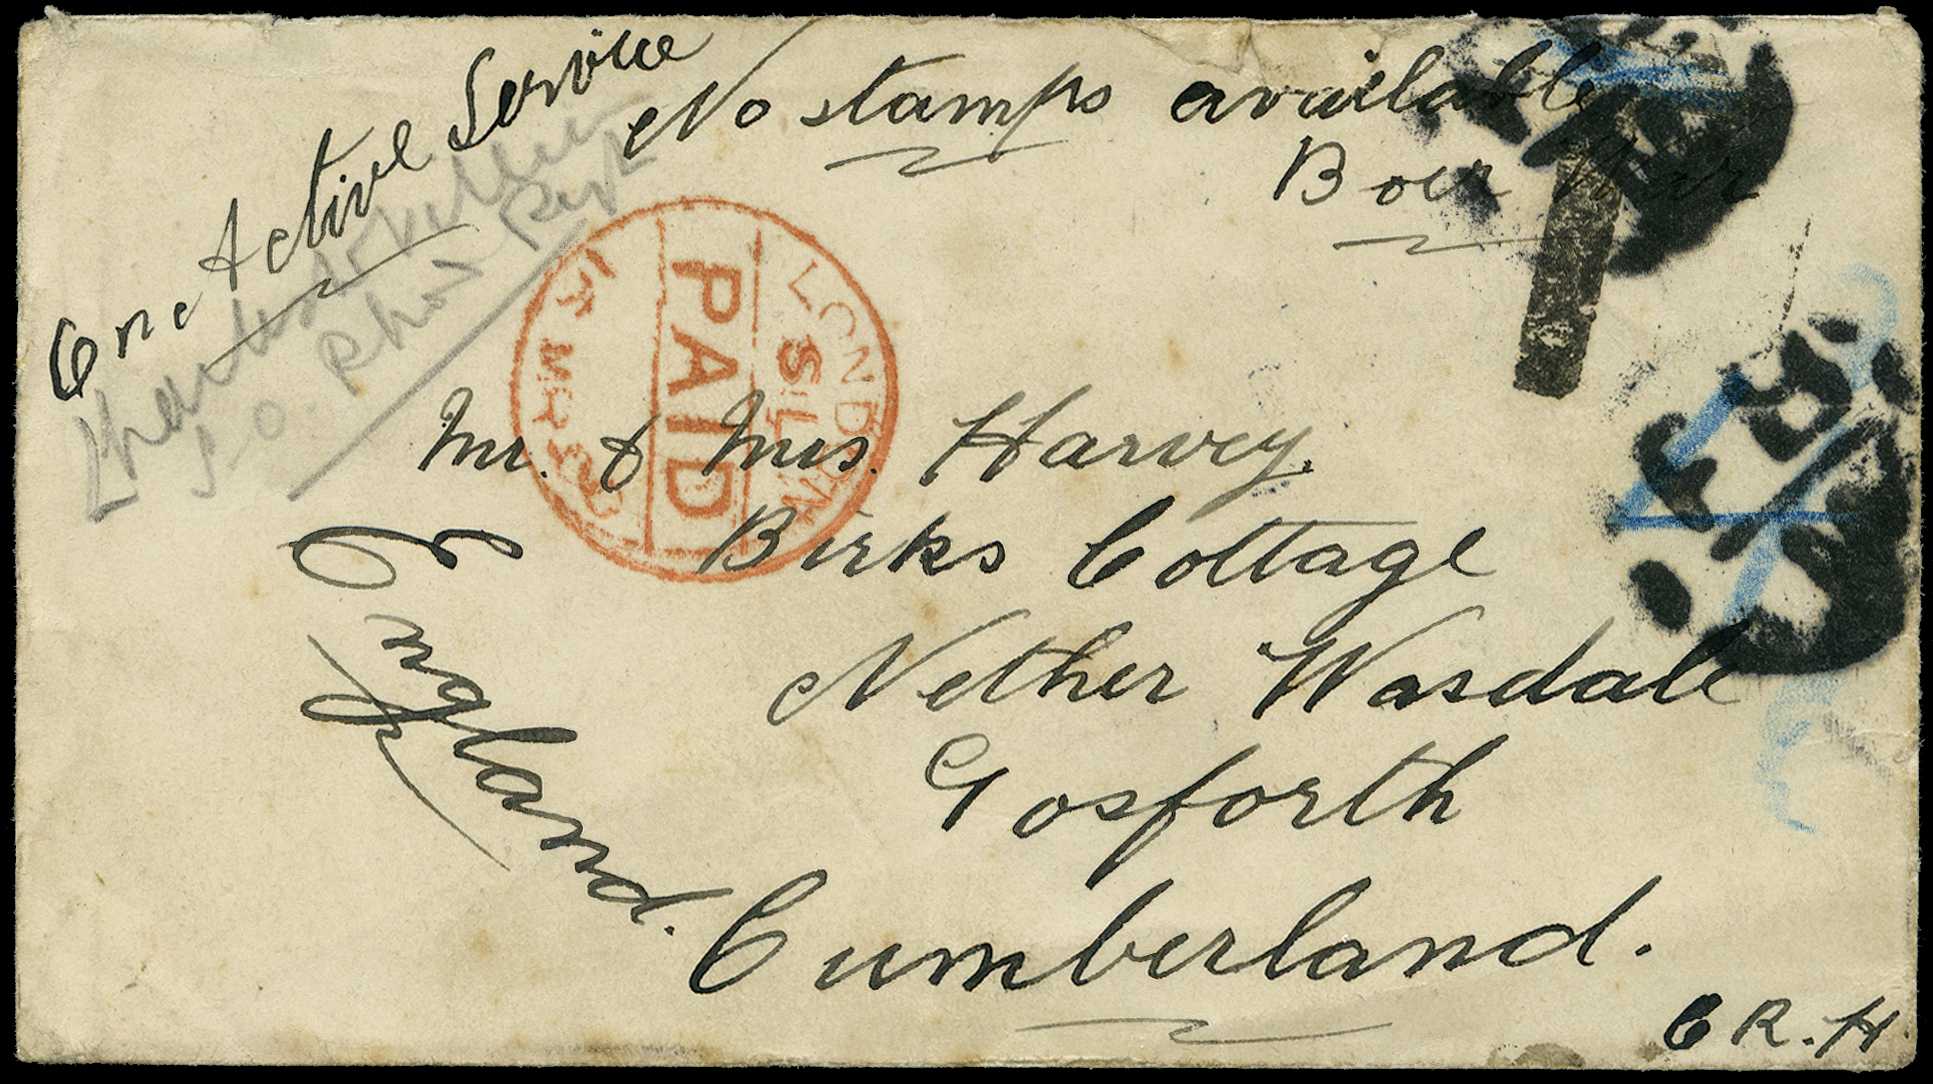 On Active Service
No stamps available
Boer War
LONDON
S.L
PAID
17 MR
T
Mr. & Mrs. Harvey.
Birks Cottage
Nether Wasdale
Gosforth
Cumberland.
England.
C R. H